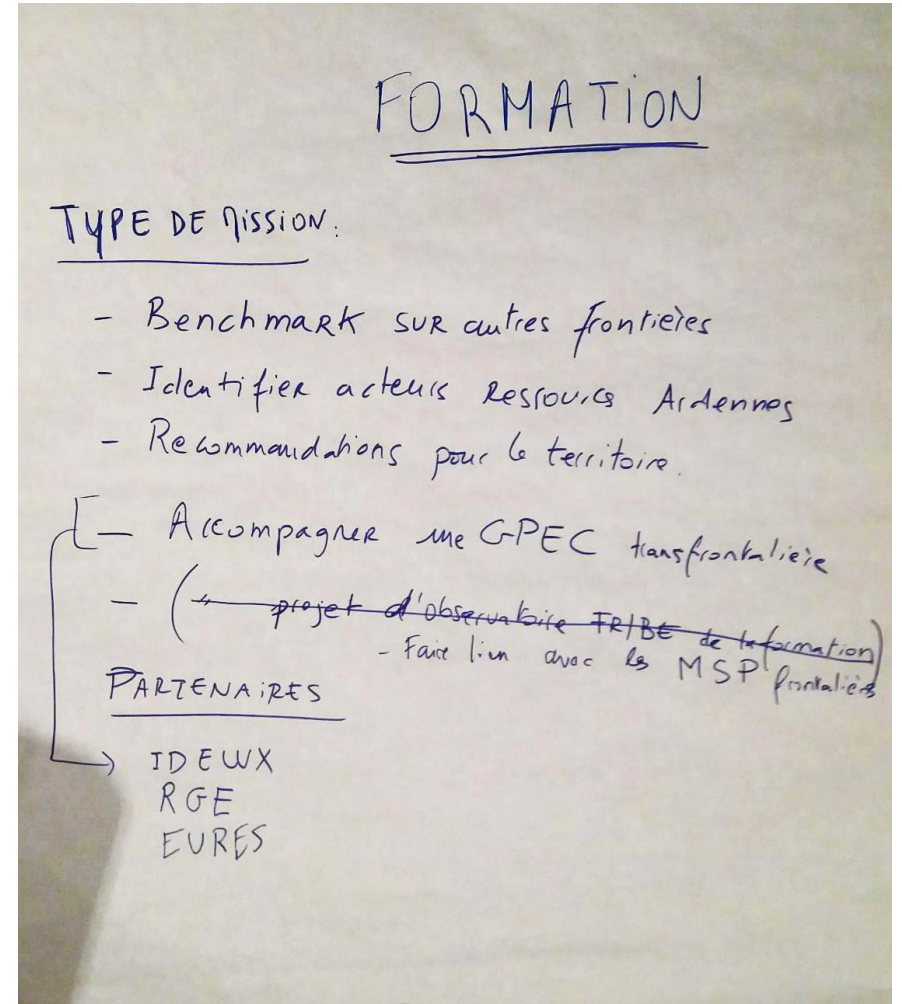 FORMATION
TYPE DE MISSION:
- Benchmark SUR autres frontières
- Identifier acteurs Ressources Ardennes
- Recommandations pour le territoire.
- Accompagner une GPEC transfrontalière
- ( projet d'observatoire FR/BE de la formation)
- Faire lien avec les MSP frontaliers
PARTENAIRES
IDEWX
RGE
EURES